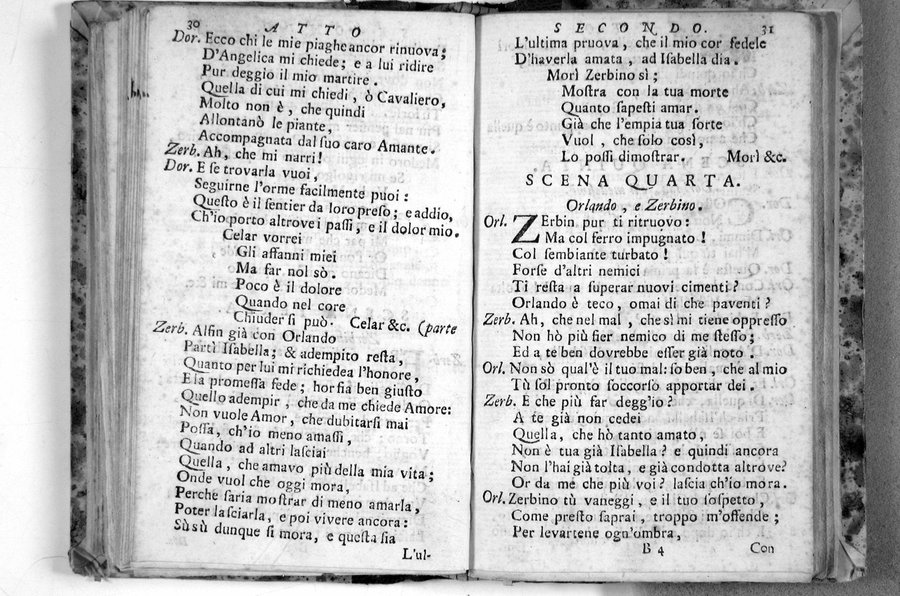 30 ATTO
Dor. Ecco chi le mie piaghe ancor rinuova;
D'Angelica mi chiede; e a lui ridire
Pur deggio il mio martire.
Quella di cui mi chiedi, ò Cavaliero,
Molto non è, che quindi
Allontanò le piante,
Accompagnata dal suo caro Amante.
Zerb. Ah, che mi narri!
Dor. E se trovarla vuoi,
Seguirne l'orme facilmente puoi:
Questo è il sentier da loro preso; e addio,
Ch'io porto altrove i passi, e il dolor mio.
Celar vorrei
Gli affanni miei
Ma far nol sò.
Poco è il dolore
Quando nel core
Chiudersi può. Celar &c. (parte
Zerb. Alfin già con Orlando
Partì Isabella; & adempito resta,
Quanto per lui mi richiedea l'honore,
E la promessa fede; hor sia ben giusto
Quello adempir, che da me chiede Amore:
Non vuole Amor, che dubitarsi mai
Possa, ch'io meno amassi,
Quando ad altri lasciai
Quella, che amavo più della mia vita;
Onde vuol che oggi mora,
Perche saria mostrar di meno amarla,
Poter lasciarla, e poi vivere ancora:
Sùsù dunque si mora, e questa sia
L'ul-
SECONDO. 31
L'ultima pruova, che il mio cor fedele
D'haverla amata, ad Isabella dia.
Morì Zerbino sì;
Mostra con la tua morte
Quanto sapesti amar.
Già che l'empia tua sorte
Vuol, che solo così,
Lo possi dimostrar. Morì &c.
SCENA QUARTA.
Orlando, e Zerbino.
Orl. ZErbin pur ti ritruovo:
Ma col ferro impugnato!
Col sembiante turbato!
Forse d'altri nemici
Ti resta a superar nuovi cimenti?
Orlando è teco, omai di che paventi?
Zerb. Ah, che nel mal, che sì mi tiene oppresso
Non hò più fier nemico di me stesso;
Ed a te ben dovrebbe esser già noto.
Orl. Non sò qual'è il tuo mal: so ben, che al mio
Tù sol pronto soccorso apportar dei.
Zerb. E che più far degg'io?
A te già non cedei
Quella, che hò tanto amato,
Non è tua già Isabella? e quindi ancora
Non l'hai già tolta, e già condotta altrove?
Or da me che più voi? lascia ch'io mora.
Orl. Zerbino tù vaneggi, e il tuo sospetto,
Come presto saprai, troppo m'offende;
Per levartene ogn'ombra,
B 4 Con